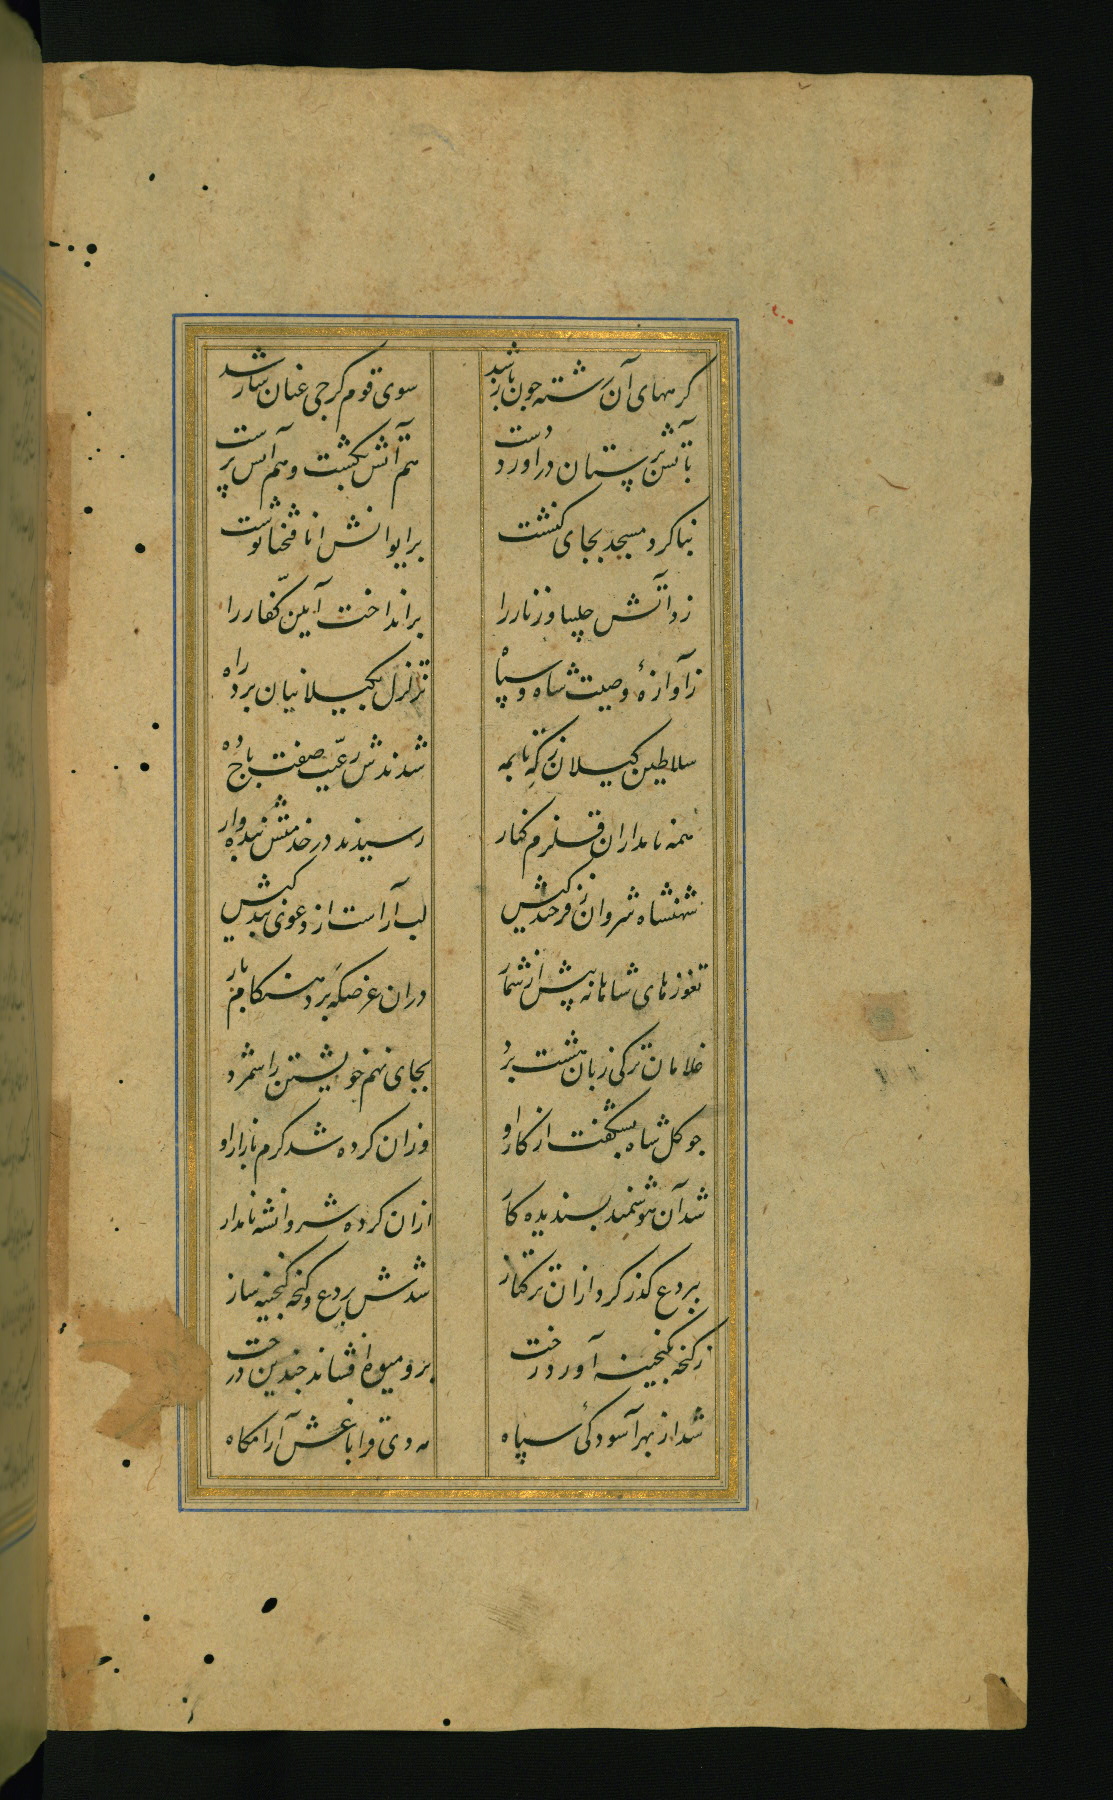 کرههای آن رشته چون باز شد سوی قوم کرجی عنان ساز شد
بآتش پرستان درآورد دست هم آتش بکشت و هم آتش پرست
بنا کرد مسجد بجای کنشت بر ایوانش انا فتحنا نوشت
زد آتش چلیپا و زنار را برانداخت آیین کفار را
ز آوازهٔ وصیت شاه و سپاه تزلزل بکیلانیان برد راه
سلاطین کیلان ز که تا بمه شدندش رعیت صفت باج ده
همه نامداران قلزم کنار رسیدند در خدمتش بنده وار
شهنشاه شروان ز فرخندکیش لب آراست از دعوی بندکیش
تغوزهای شاهانه پیش از شمار دران عرضکه برد هنکام بار
غلامان ترکی زبان هشت برد بجای نهم خویشتن را شمرد
چو کل شاه بشکفت از کار او وزان کرده شد کرم بازار او
شد آن هوشمند پسندیده کار ازان کرده شروانشه نامدار
ببردع کذر کرد ازان ترکتاز شدش بردع و کنجه کنجینه ساز
ز کنجه بکنجینه آورد رخت برو میوه افشاند چندین درخت
شد از بهر آسودکی سپاه مه دی قراباغش آرامکاه